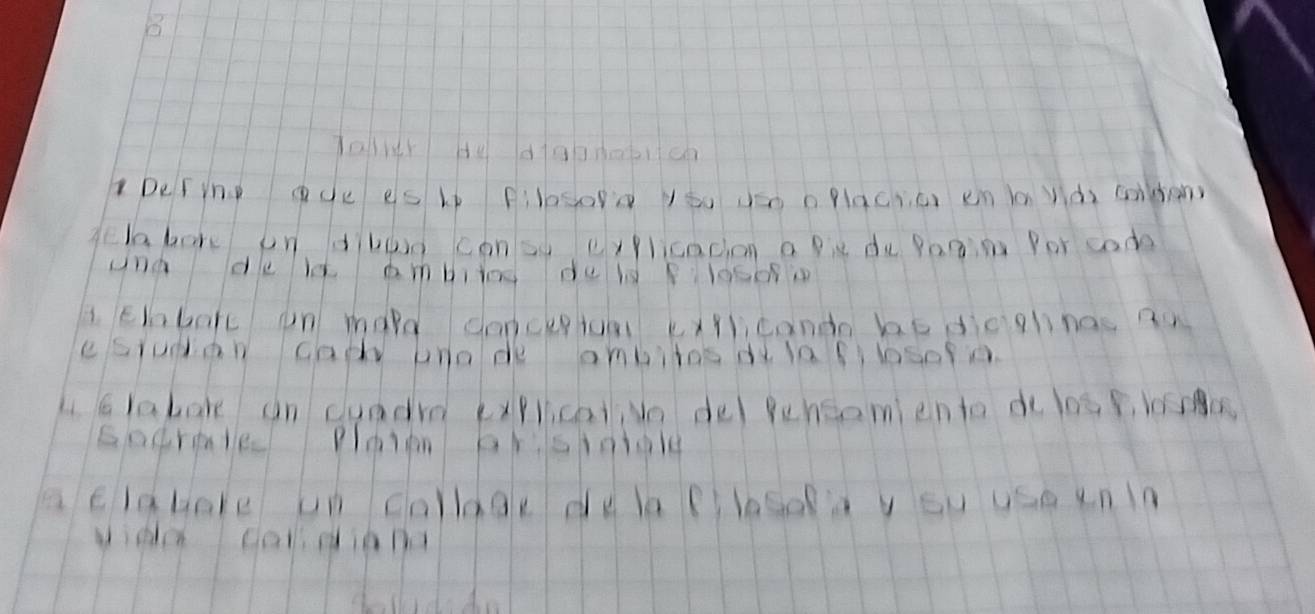 Taller de diagnostica
1 Define que es la filosofia y su uso o plactica en la vida cotidiana
2 elabore un dibujo con su explicacion a pie de pagina por cada
una de la ambitos de la filosofia
3. elabore un mapa conceptual explicando las diciplinas que
estudian cada uno de ambitos de la filosofia.
4. elabore un cuadro explicativo del pensamiento de los filosofos
Socrates Platon aristotele
5 elabore un collage de la filosofia y su uso en la
vida cotidiana
Solución